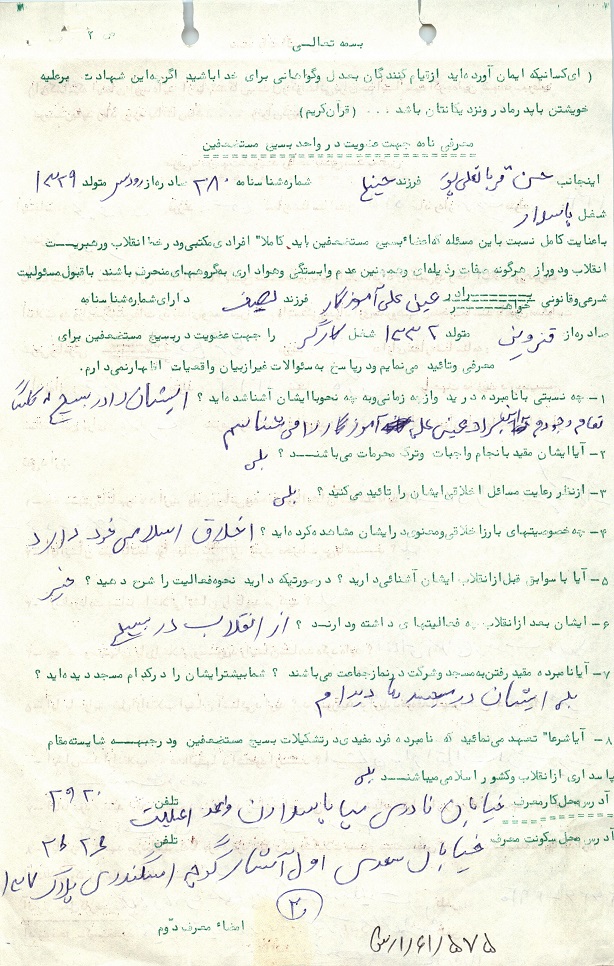 بسمه تعالی
( ای کسانیکه ایمان آورده اید از قیام کنندگان بعدل و گواهانی برای خدا باشید اگر چه این شهادت برعلیه
خویشتن یا پدر مادر و نزدیکانتان باشد ... ( قرآن کریم )
معرفی نامه جهت عضویت در واحد بسیج مستضعفین
اینجانب حسن قربانعلی پور فرزند شماره شناسنامه ۲۸۰ صادره از رودسر متولد ۱۳۲۹
شغل پاسدار
با عنایت کامل نسبت باین مسئله که اعضاء بسیج مستضعفین باید "کاملا" افرادی مکتبی و در خط انقلاب و رهبریت
انقلاب و دور از هرگونه صفات رذیله ای و همچنین عدم وابستگی و هواداری به گروههای منحرف باشند با قبول مسئولیت
شرعی و قانونی خواهر برادر عینی علی آموزگار فرزند دارای شماره شناسنامه
صادره از قزوین متولد ۱۳۳۲ شغل کارگر را جهت عضویت در بسیج مستضعفین برای
معرفی و تائید می نمایم و در پاسخ به سئوالات غیر از بیان واقعیات اظهار نمی دارم.
۱- چه نسبتی با نامبرده دارید و از چه زمانی و به چه نحو با ایشان آشنا شده اید ؟ ایشان را در بسیج
تمام وجودم برادر عینی علی آموزگار را می شناسم
۲- آیا ایشان مقید بانجام واجبات وترک محرمات می باشند ؟ بلی
۳- از نظر رعایت مسائل اخلاقی ایشان را تائید می کنید ؟ بلی
۴- چه خصوصیتهای بارز اخلاقی و معنوی در ایشان مشاهده کرده اید ؟ اخلاق اسلامی خود دارند
۵- آیا با سوابق قبل از انقلاب ایشان آشنائی دارید ؟ در صورتیکه دارید نحوه فعالیت را شرح دهید ؟ خیر
۶- ایشان بعد از انقلاب چه فعالیتهای داشته و دارند ؟ از انقلاب در بسیج
۷- آیا نامبرده مقید رفتن به مسجد و شرکت در نماز جماعت می باشند ؟ شما بیشتر ایشان را در کدام مسجد دیده اید ؟
بلی ایشان در مسجد ما دیده ام
۸- آیا شرعا" تعهد می نمائید که نامبرده فرد مفیدی در تشکیلات بسیج مستضعفین و در جبهه شایسته مقام
پاسداری از انقلاب وکشور اسلامی میباشند بلی
آدرس محل کار معرف خیابان نادری سپاه پاسداران واحد تلفن ۲۹۲۰
آدرس محل سکونت معرف خیابان سعدی اول کوچه اسکندری پلاک ۱۳۷ تلفن
امضاء معرف دوم